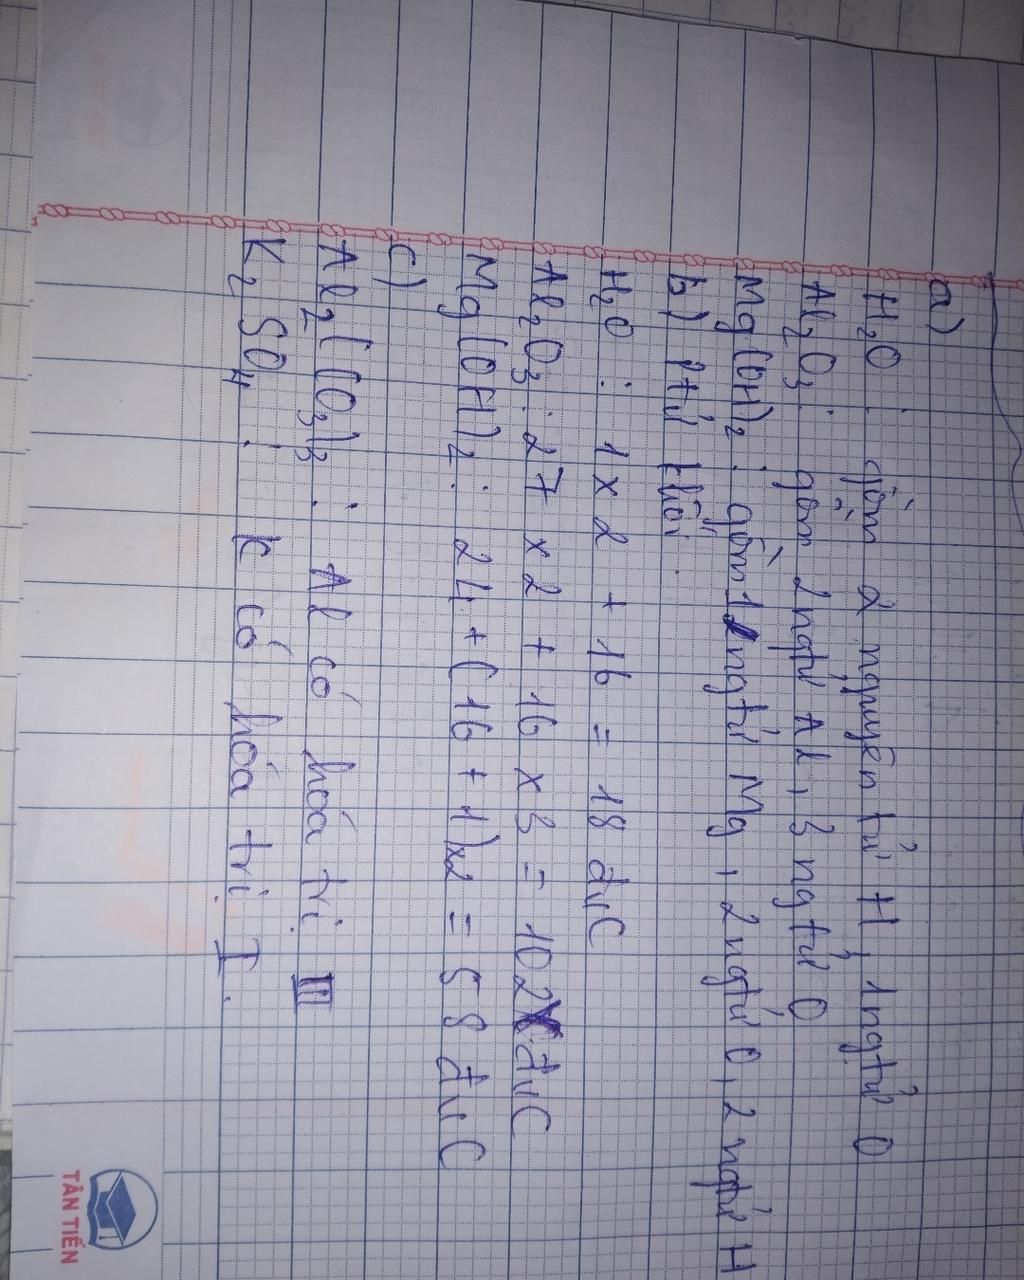 a)
H₂O : gồm 2 nguyên tử H, 1ngtử O
Al₂O₃ : gồm 2ngtử Al, 3 ngtử O
Mg(OH)₂ : gồm 1 ngtử Mg, 2ngtử O, 2 ngtử H
b) Ptử khối.
H₂O : 1 x 2 + 16 = 18 đvC
Al₂O₃ : 27 x 2 + 16 x 3 = 102 đvC
Mg(OH)₂ : 24 + (16 + 1)x2 = 58 đvC
c)
Al₂(CO₃)₃ : Al có hóa trị III
K₂SO₄ : K có hóa trị I.
TÂN TIẾN